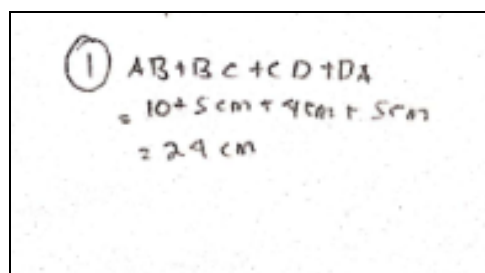 ① AB+BC+CD+DA
= 10+5cm+4cm+5cm
= 24 cm